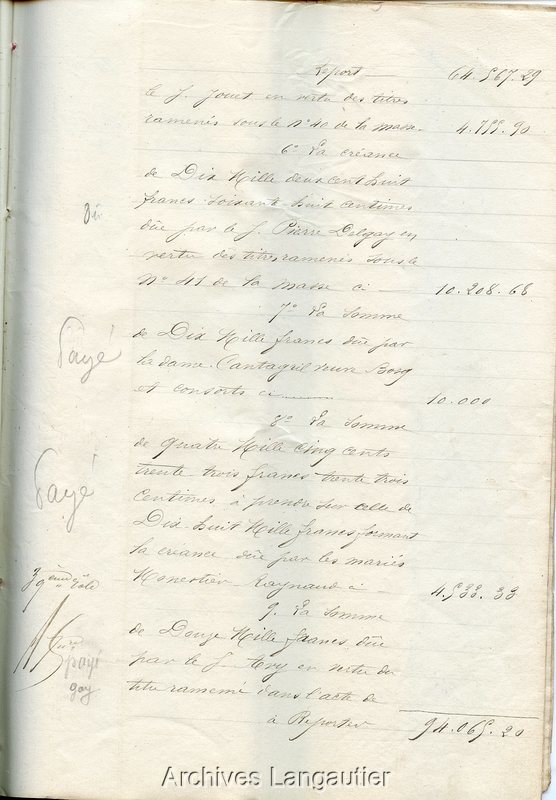 Report 64.567.29
le S. Jouet en vertu des titres
ramenés sous le N° 40 de la masse 4.755.90
6° La créance
de Dix Mille deux cent huit
francs soixante huit centimes
dûe par le S. Pierre Delgay en
vertu des titres ramenés sous le
N° 41 de la masse ci 10.208.68
7° La somme
de Dix Mille francs dûe par
la dame Cantagril veuve Bosq
et consorts ci 10.000
Payé
8° La somme
de quatre Mille cinq cents
trente trois francs trente trois
centimes à prendre sur celle de
Dix huit Mille francs formant
la créance dûe par les mariés
Monestier Raynaud ci 4.533.33
Payé
39ème rôle
9. La somme
de Douze Mille francs dûe
par le S. Ary en vertu du
titre ramené dans l'acte de
à Reporter 94.065.20
payé
Gay
Archives Langautier